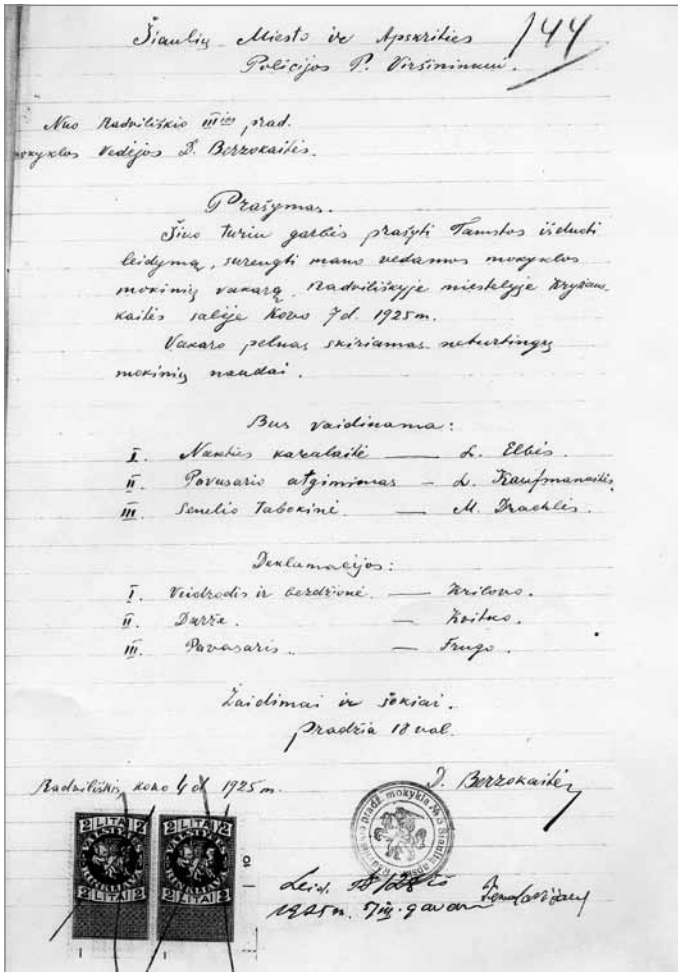 Šiaulių Miesto ir Apskrities
Policijos P. Viršininkui.
144
Nuo Radviliškio III ios prad.
mokyklos Vedėjos D. Berzokaitės.
Prašymas.
Šiuo turiu garbės prašyti Tamstos išduoti
leidymą, surengti mano vedamos mokyklos
mokinių vakarą, Radviliškyje miestelyje Kryžaus-
kaitės salėje Kovo 7 d. 1925 m.
Vakaro pelnas skiriamas neturtingų
mokinių naudai.
Bus vaidinama:
I. Nakties karalaitė — L. Elbės.
II. Pavasario atgimimas — L. Kaufmanaitės.
III. Senelio Tabokinė. — M. Drachlės.
Deklamacijos:
I. Veidrodis ir bezdžionė. — Krilovo.
II. Darže. — Kvitko.
III. Pavasaris. — Frugo.
Žaidimai ir šokiai.
Pradžia 18 val.
Radviliškis, kovo 4 d. 1925 m.
D. Berzokaitė
2 LITAI 2
VALSTYBĖS
RINKLIAVA
2 LITAI 2
2 LITAI 2
VALSTYBĖS
RINKLIAVA
2 LITAI 2
10
1 1
pradž. mokykla № 3 Šiaulių apskr.
Leid.
1925 m. 5/III. gavau